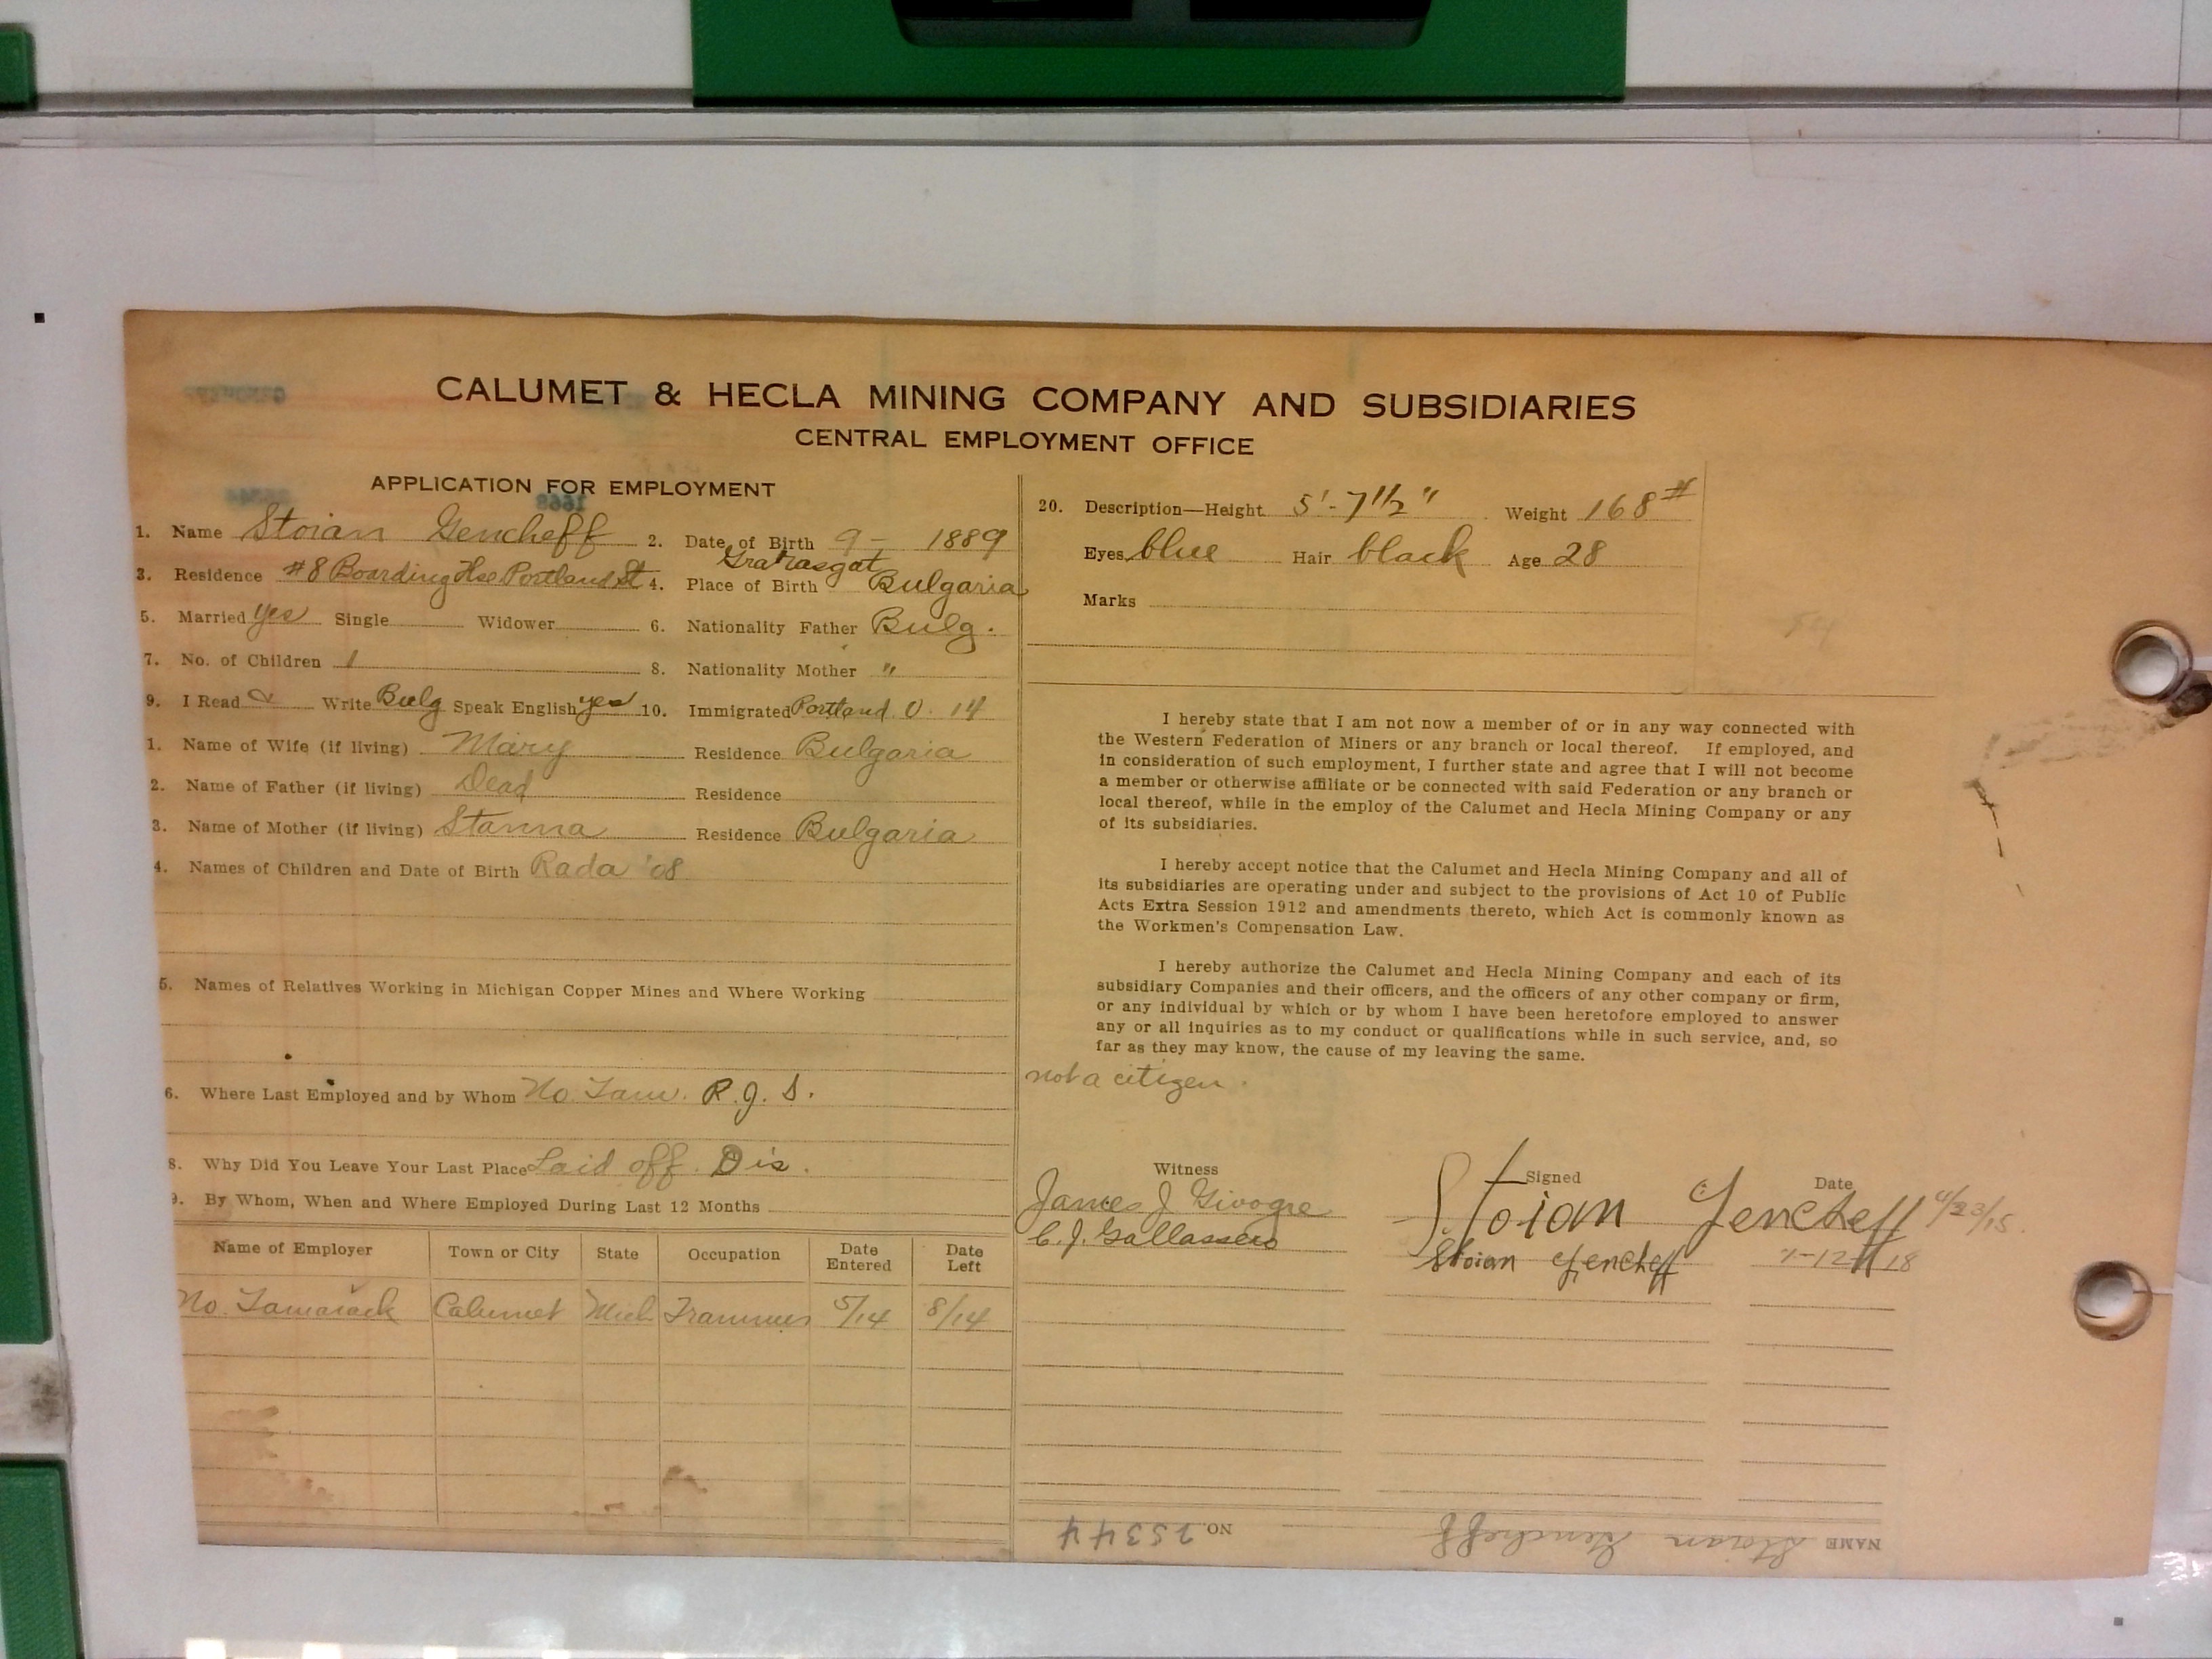 CALUMET & HECLA MINING COMPANY AND SUBSIDIARIES
CENTRAL EMPLOYMENT OFFICE
APPLICATION FOR EMPLOYMENT
1668
1. Name Stoian Gencheff 2. Date of Birth 9 - 1889
3. Residence #8 Boarding Hse Portland St 4. Place of Birth Bulgaria
5. Married yes Single Widower 6. Nationality Father Bulg.
7. No. of Children 1 8. Nationality Mother "
9. I Read & Write Bulg Speak English yes 10. Immigrated Portland 14
1. Name of Wife (if living) Mary Residence Bulgaria
2. Name of Father (if living) Dead Residence
3. Name of Mother (if living) Stanna Residence Bulgaria
4. Names of Children and Date of Birth Rada '08
5. Names of Relatives Working in Michigan Copper Mines and Where Working
6. Where Last Employed and by Whom No. Tam. R.J.S.
8. Why Did You Leave Your Last Place Laid off. Dis.
9. By Whom, When and Where Employed During Last 12 Months
Name of Employer Town or City State Occupation Date Entered Date Left
No. Tamarack Calumet Mich Trammer 5/14 8/14
20. Description—Height 5'-7 1/2" Weight 168#
Eyes blue Hair black Age 28
Marks
I hereby state that I am not now a member of or in any way connected with
the Western Federation of Miners or any branch or local thereof. If employed, and
in consideration of such employment, I further state and agree that I will not become
a member or otherwise affiliate or be connected with said Federation or any branch or
local thereof, while in the employ of the Calumet and Hecla Mining Company or any
of its subsidiaries.
I hereby accept notice that the Calumet and Hecla Mining Company and all of
its subsidiaries are operating under and subject to the provisions of Act 10 of Public
Acts Extra Session 1912 and amendments thereto, which Act is commonly known as
the Workmen's Compensation Law.
I hereby authorize the Calumet and Hecla Mining Company and each of its
subsidiary Companies and their officers, and the officers of any other company or firm,
or any individual by which or by whom I have been heretofore employed to answer
any or all inquiries as to my conduct or qualifications while in such service, and, so
far as they may know, the cause of my leaving the same.
not a citizen.
Witness Signed Date
James J. Givogre Stoian Gencheff 4/23/15.
C. J. Gallassero Stoian Gencheff 18
NAME Stoian Gencheff NO. 25344